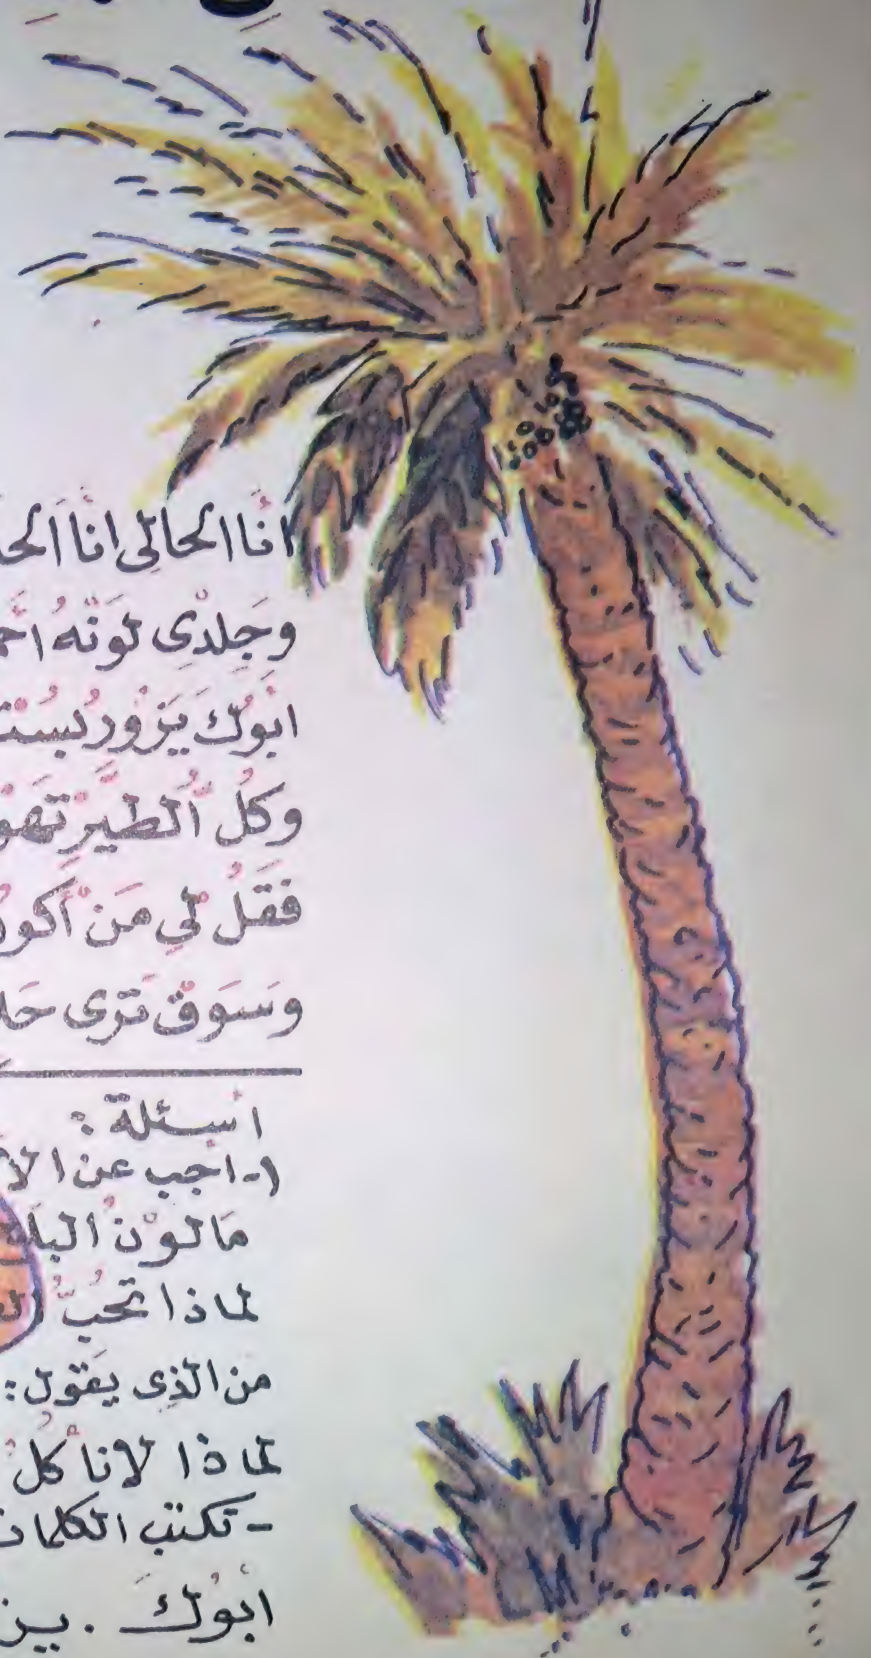 أنَا الحالى انا الحا
وَجَلدِى لوَنَهُ احم
ابوُك يَزور بسُت
وَكلُ الطيَر تهو
فقَلُ لي مَن أكو
وَسَوَف تَرى حَل
اسئلة :
١-اجب عن الا
مَا لون البل
لماذا تحُبّ ال
من الذى يقول:
لماذا لانأكل
-تكتب الكلما
ابوُكَ . يز